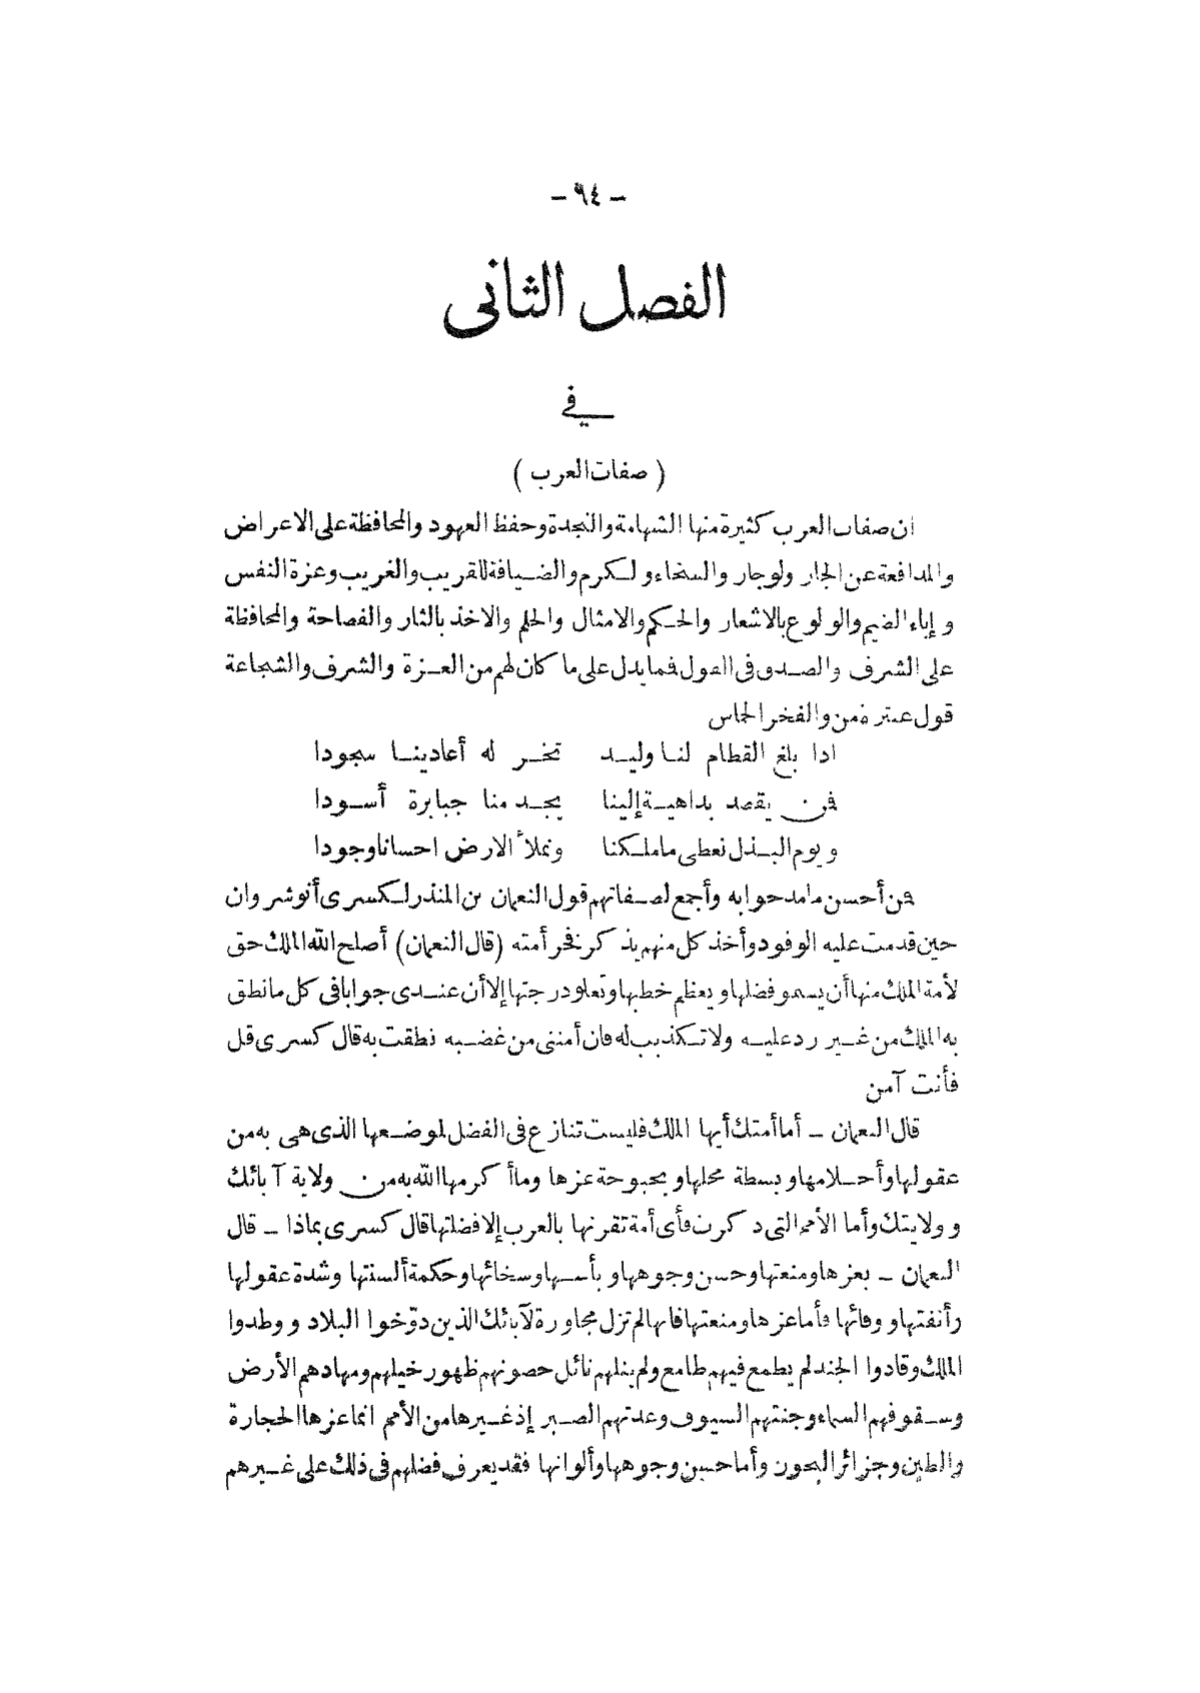 - ٩٤ -
الفصل الثانى
في
( صفات العرب )
ان صفات العرب كثيرة منها الشهامة والنجدة وحفظ العهود والمحافظة على الاعراض
والمدافعة عن الجار ولوجار والسخاء ولكرم والضيافة للقريب والغريب وعزة النفس
وإباء الضيم والولوع بالاشعار والحكم والامثال والحلم والاخذ بالثار والفصاحة والمحافظة
على الشرف والصدق فى القول فمما يدل على ما كان لهم من العزة والشرف والشجاعة
قول عنترة من والفخر الحماس
اذا بلغ الفطام لنا وليد تخر له أعادينا سجودا
فمن يقصد بداهية إلينا يجد منا جبابرة أسودا
ويوم البذل نعطى ما ملكنا ونملأ الارض احسانا وجودا
فمن أحسن ما مدحوا به وأجمع لصفاتهم قول النعمان بن المنذر لكسرى أنوشروان
حين قدمت عليه الوفود وأخذ كل منهم يذكر فخر أمته (قال النعمان) أصلح الله الملك حق
لأمة الملك منها أن يسمو فضلها ويعظم خطبها وتعلو درجتها إلا أن عندى جوابا فى كل ما نطق
به الملك من غير رد عليه ولا تكذيب له فان أمننى من غضبه نطقت به قال كسرى قل
فأنت آمن
قال النعمان - أما أمتك أيها الملك فليست تنازع فى الفضل لموضعها الذى هى به من
عقولها وأحلامها وبسطة محلها وبحبوحة عزها وما أكرمها الله به من ولاية آبائك
وولايتك وأما الأمم التى ذكرت فأى أمة تقرنها بالعرب إلا فضلتها قال كسرى بماذا - قال
النعمان - بعزها ومنعتها وحسن وجوهها وبأسها وسخائها وحكمة ألسنتها وشدة عقولها
وأنفتها ووفائها فأما عزها ومنعتها فانها لم تزل مجاورة لآبائك الذين دوّخوا البلاد ووطدوا
الملك وقادوا الجند لم يطمع فيهم طامع ولم ينلهم نائل حصونهم ظهور خيلهم ومهادهم الأرض
وسقوفهم السماء وجنتهم السيوف وعدتهم الصبر إذ غيرها من الأمم انما عزها الحجارة
والطين وجزائر البحون وأما حسن وجوهها وألوانها فقد يعرف فضلهم فى ذلك على غيرهم